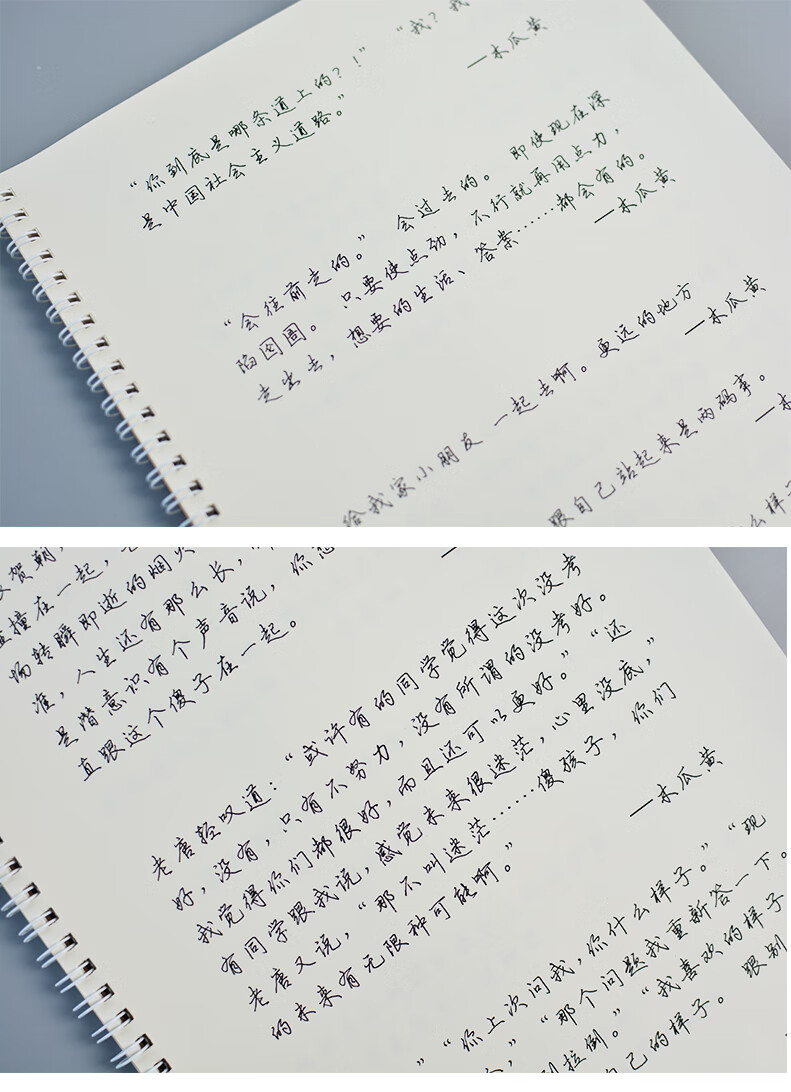 “你到底是哪条道上的？！” “我？我
是中国社会主义道路。”
—木瓜黄
“会往前走的。” 会过去的。 即使现在深
陷囹圄。 只要使点劲，不行就再用点力，
走出去，想要的生活、答案……都会有的。
—木瓜黄
给我家小朋友 一起去啊。更远的地方
—木瓜黄
跟自己站起来是两码事。
—木
么样子
贺朝，
直撞在一起，
场转瞬即逝的烟火
准，人生还有那么长，
是潜意识有个声音说，你
直跟这个傻子在一起。
老唐轻叹道：“或许有的同学觉得这次没考
好，没有，只有不努力，没有所谓的没考好。
我觉得你们都很好，而且还可以更好。” “还
有同学跟我说，感觉未来很迷茫，心里没底，”
老唐又说，“那不叫迷茫……傻孩子，你们
的未来有无限种可能啊。”
—木瓜黄
“你上次问我，你什么样子。” “现
“那个问题我重新答一下。
到拉倒。” “我喜欢的样子
自己的样子。 跟别